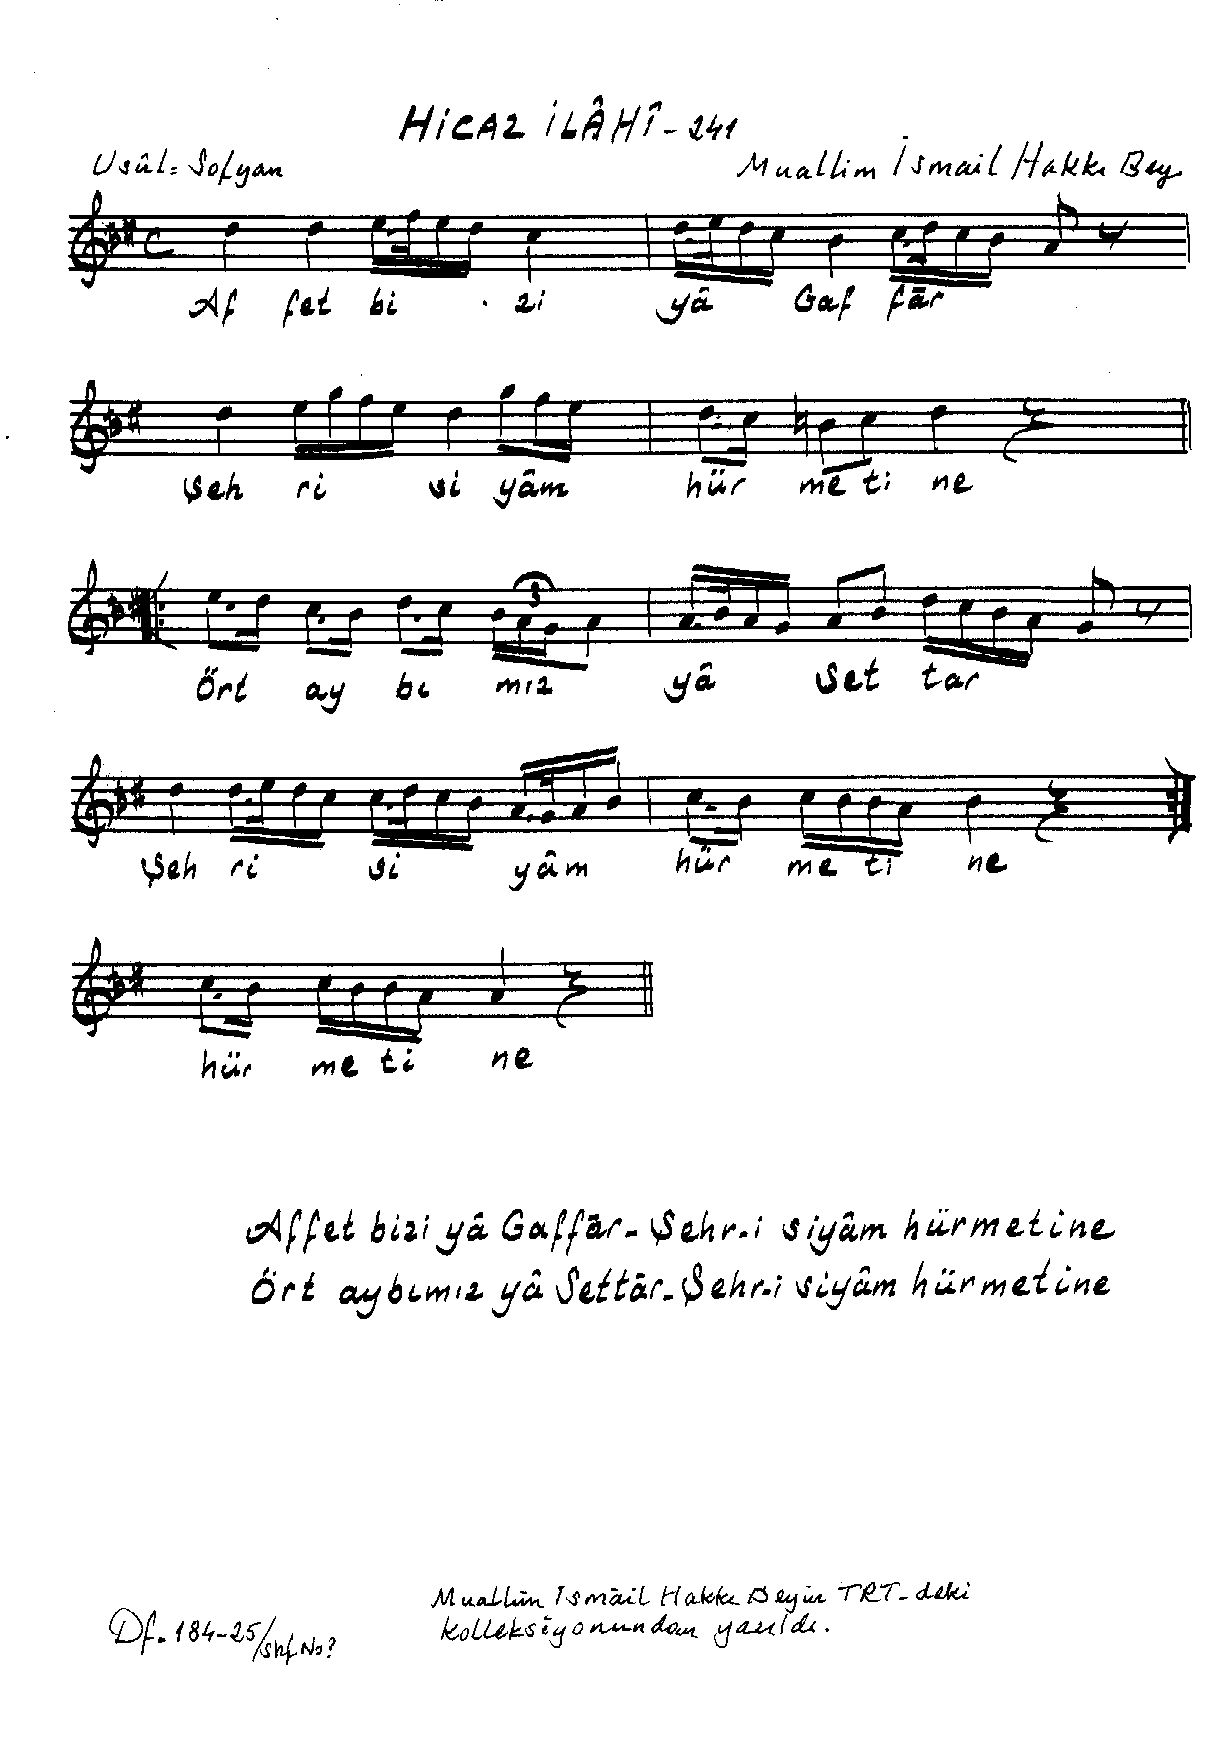 HİCAZ İLÂHÎ - 241
Usûl: Sofyan
Muallim İsmail Hakkı Bey
Af fet bi . zi yâ Gaf fâr
Şeh ri si yâm hür me ti ne
3
Ört ay bı mız yâ Set tar
Şeh ri si yâm hür me ti ne
hür me ti ne
Affet bizi yâ Gaffâr - Şehr-i siyâm hürmetine
Ört aybımız yâ Settâr - Şehr-i siyâm hürmetine
Muallim İsmâil Hakkı Beyin TRT-deki
kolleksiyonundan yazıldı.
Df. 184-25/Shf.No?